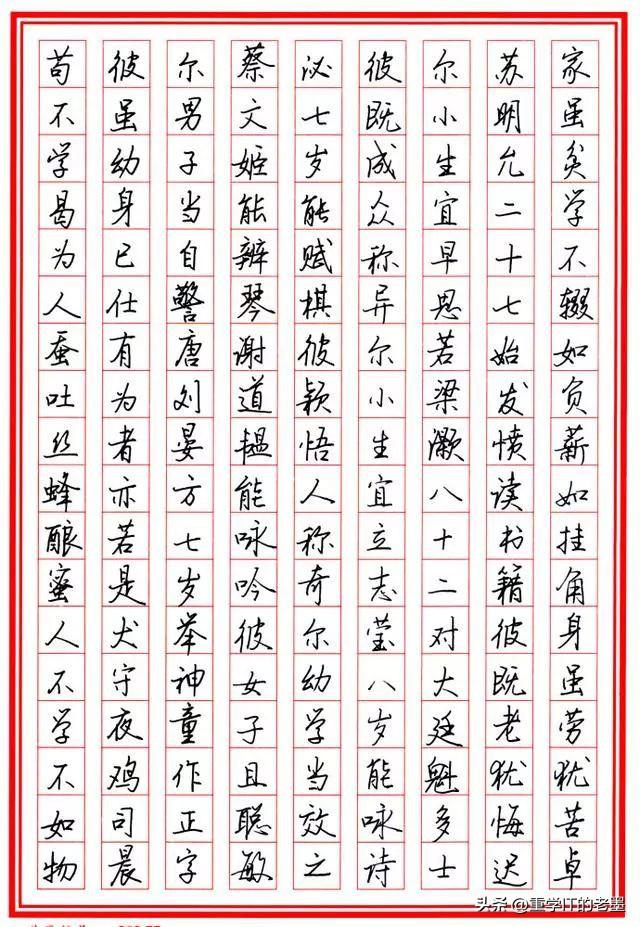 家虽贫学不辍如负薪如挂角身虽劳犹苦卓
苏明允二十七始发愤读书籍彼既老犹悔迟
尔小生宜早思若梁灏八十二对大廷魁多士
彼既成众称异尔小生宜立志莹八岁能咏诗
泌七岁能赋棋彼颖悟人称奇尔幼学当效之
蔡文姬能辨琴谢道韫能咏吟彼女子且聪敏
尔男子当自警唐刘晏方七岁举神童作正字
彼虽幼身已仕有为者亦若是犬守夜鸡司晨
苟不学曷为人蚕吐丝蜂酿蜜人不学不如物
头条 @重学IT的老墨